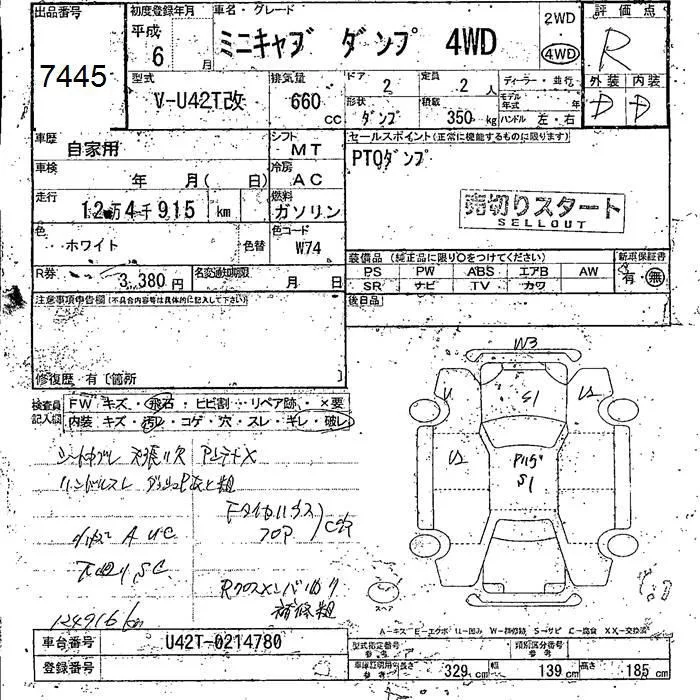 出品番号
7445
初度登録年月
平成
6 月
車名・グレード
ミニキャブ ダンプ 4WD
2WD
4WD
評価点
R
型式
V-U42T改
排気量
660 cc
ドア
2
定員
2 人
ディーラー・並行
形状
ダンプ
積載
350 kg
モデル年式 年
ハンドル 左・右
外装 内装
D D
車歴
自家用
シフト
MT
車検
年 月( 日)
冷房
AC
走行
12万4千915 km
燃料
ガソリン
色
ホワイト
色替
色コード
W74
R券
3,380円
名変通知期限
月 日
セールスポイント(正常に機能するものに限ります)
PTOダンプ
売切りスタート
SELLOUT
装備品 (純正品に限り○をつけてください)
新車保証書
PS PW ABS エアB AW
有・無
SR ナビ TV カワ
後日品
注意事項申告欄(不具合内容等は具体的に記入して下さい)
修復歴 有〔箇所 〕
検査員記入欄
FW キズ・飛石・ヒビ割・リペア跡・×要
内装 キズ・汚レ・コゲ・穴・スレ・キレ・破レ
ハンドルスレ
下回り S.C
124916 km
補修粗
W3
S1
S1
A-キズ E-エクボ U-凹み W-補修跡 S-サビ C-腐食 XX-交換済
車台番号
U42T-0214780
登録番号
型式指定番号
参考
類別区分番号
参考
車庫証明用
参考
長さ 329 cm 幅 139 cm 高さ 185 cm